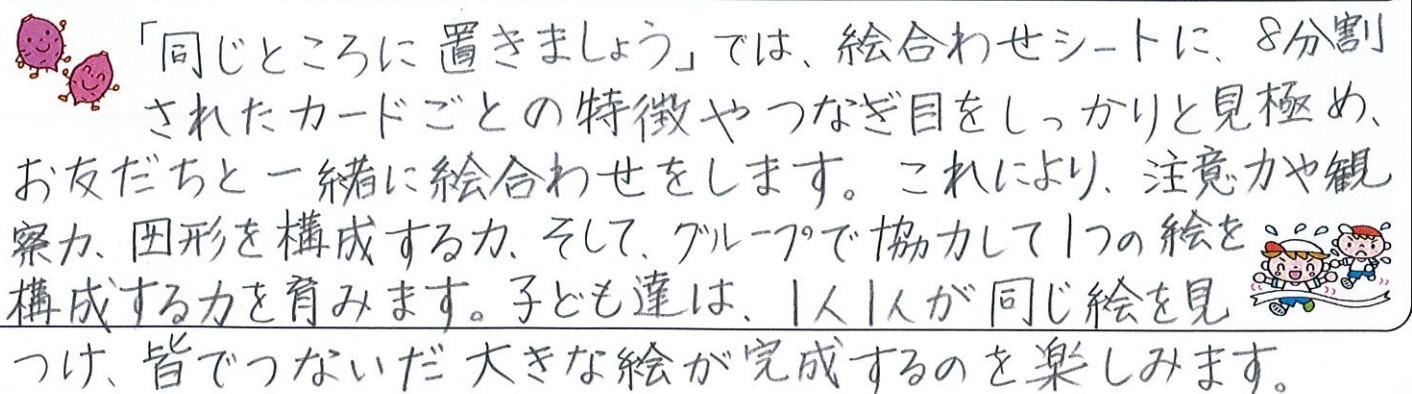 「同じところに置きましょう」では、絵合わせシートに、8分割
されたカードごとの特徴やつなぎ目をしっかりと見極め、
お友だちと一緒に絵合わせをします。これにより、注意力や観
察力、図形を構成する力、そして、グループで協力して1つの絵を
構成する力を育みます。子ども達は、1人1人が同じ絵を見
つけ、皆でつないだ大きな絵が完成するのを楽しみます。